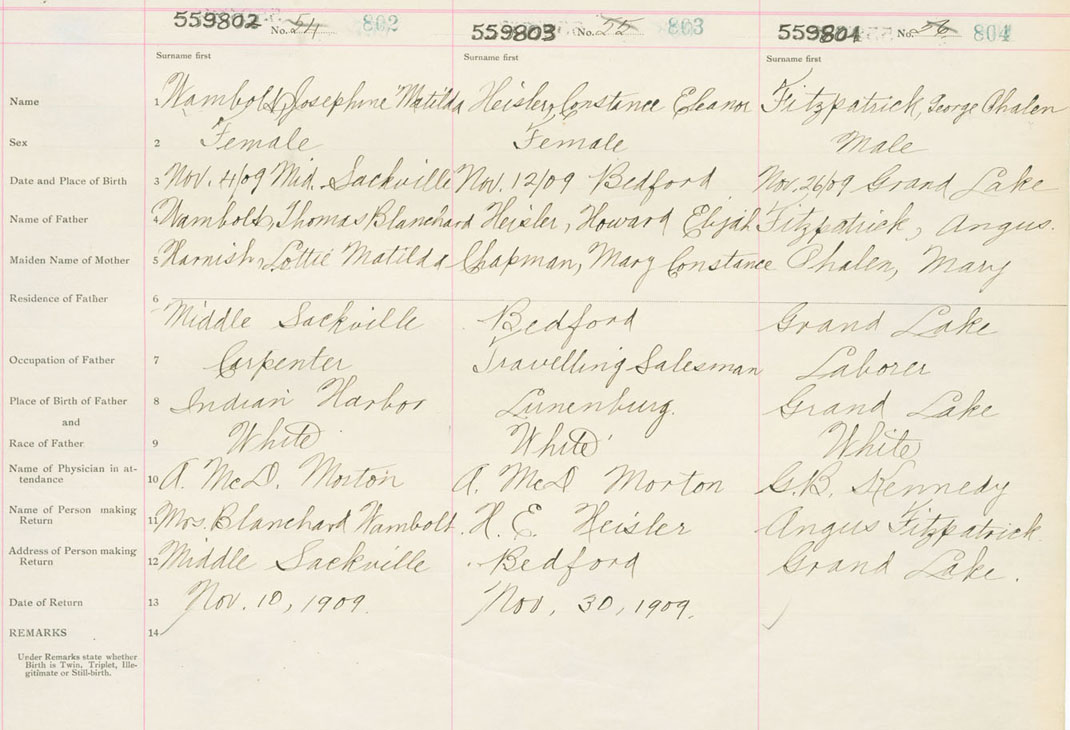 559802 No. 54 802 559803 No. 55 803 559804 No. 56 804
Surname first Surname first Surname first
Name 1 Wambolt, Josephine Matilda Heisler, Constance Eleanor Fitzpatrick, George Phalen
Sex 2 Female Female Male
Date and Place of Birth 3 Nov. 4/09 Mid. Sackville Nov. 12/09 Bedford Nov. 26/09 Grand Lake
Name of Father 4 Wambolt, Thomas Blanchard Heisler, Howard Elijah Fitzpatrick, Angus.
Maiden Name of Mother 5 Harnish, Lottie Matilda Chapman, Mary Constance Phalen, Mary
Residence of Father 6
Middle Sackville Bedford Grand Lake
Occupation of Father 7 Carpenter Travelling Salesman Laborer
Place of Birth of Father 8 Indian Harbor Lunenburg. Grand Lake
and
Race of Father 9 White White White
Name of Physician in at-
tendance 10 A. McD. Morton A. McD Morton G.B. Kennedy
Name of Person making
Return 11 Mrs. Blanchard Wambolt. H. E. Heisler Angus Fitzpatrick.
Address of Person making
Return 12 Middle Sackville Bedford Grand Lake.
Date of Return 13 Nov. 10, 1909. Nov. 30, 1909.
REMARKS 14
Under Remarks state whether
Birth is Twin, Triplet, Ille-
gitimate or Still-birth.